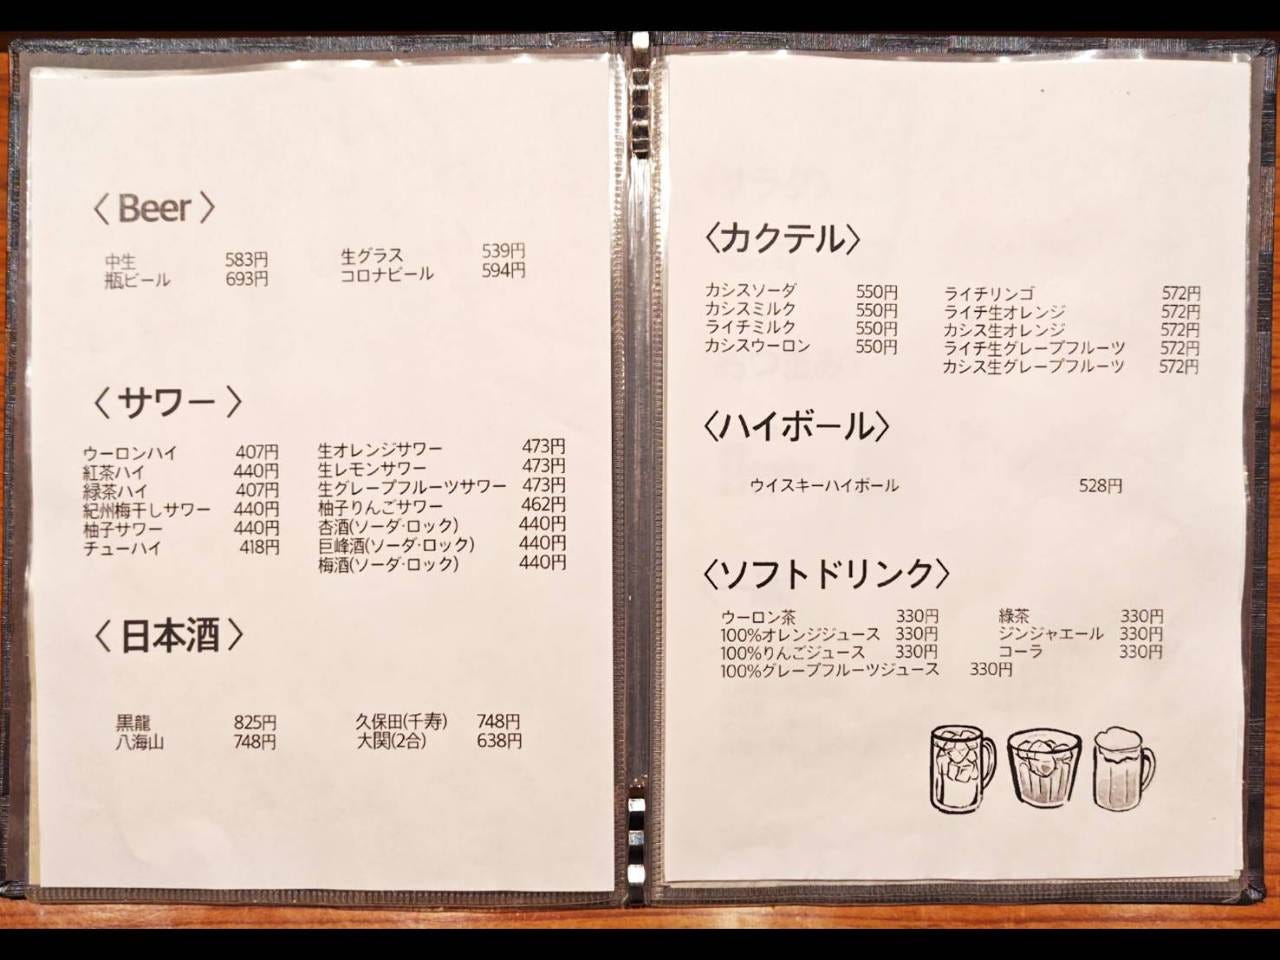 〈 Beer 〉
中生 583円
瓶ビール 693円
生グラス 539円
コロナビール 594円
〈 サワー 〉
ウーロンハイ 407円
紅茶ハイ 440円
緑茶ハイ 407円
紀州梅干しサワー 440円
柚子サワー 440円
チューハイ 418円
生オレンジサワー 473円
生レモンサワー 473円
生グレープフルーツサワー 473円
柚子りんごサワー 462円
杏酒(ソーダ·ロック) 440円
巨峰酒(ソーダ·ロック) 440円
梅酒(ソーダ·ロック) 440円
〈 日本酒 〉
黒龍 825円
八海山 748円
久保田(千寿) 748円
大関(2合) 638円
〈カクテル〉
カシスソーダ 550円
カシスミルク 550円
ライチミルク 550円
カシスウーロン 550円
ライチリンゴ 572円
ライチ生オレンジ 572円
カシス生オレンジ 572円
ライチ生グレープフルーツ 572円
カシス生グレープフルーツ 572円
〈ハイボール〉
ウイスキーハイボール 528円
〈ソフトドリンク〉
ウーロン茶 330円
100%オレンジジュース 330円
100%りんごジュース 330円
100%グレープフルーツジュース 330円
緑茶 330円
ジンジャエール 330円
コーラ 330円